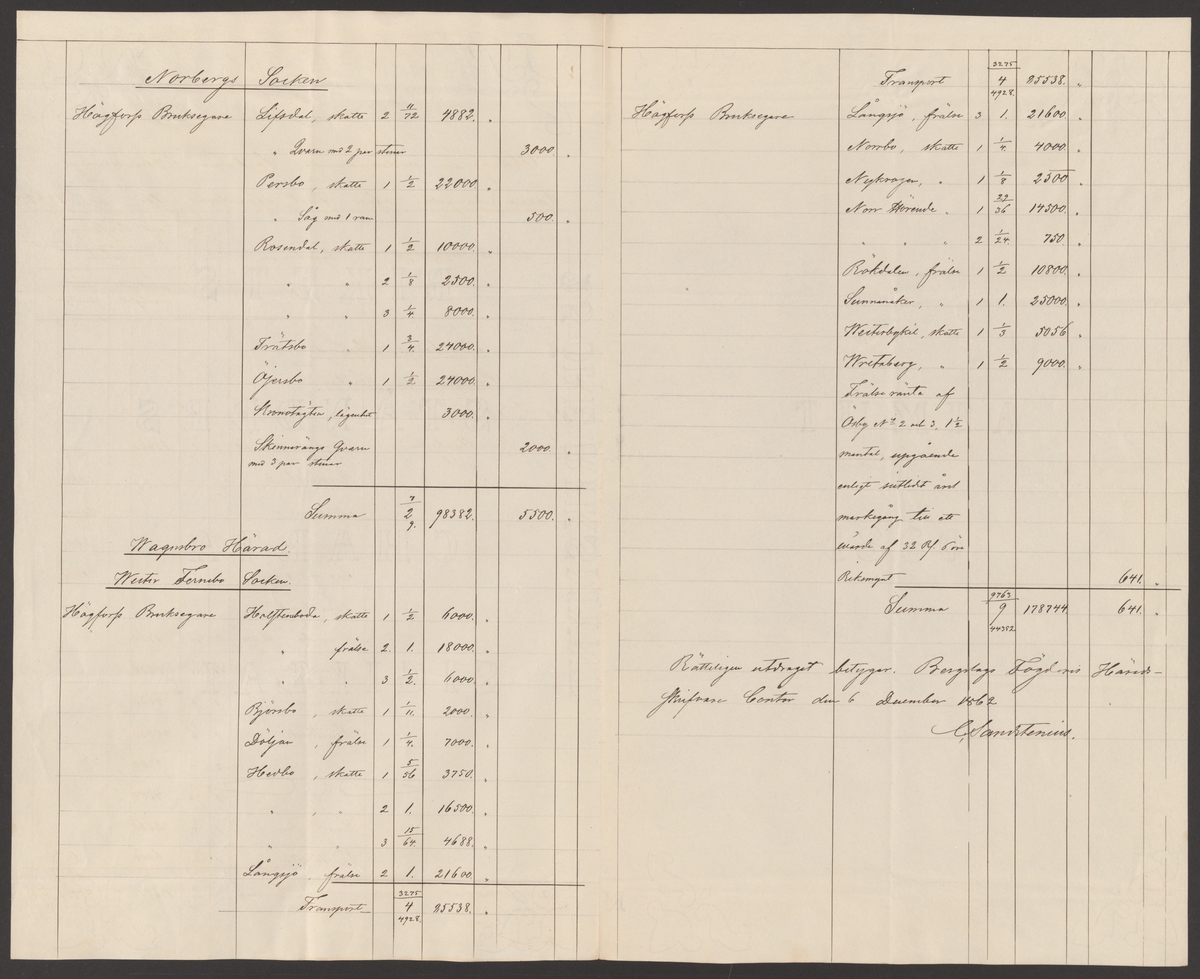 Norbergs Socken
Högforss Bruksegare Lifsdal, skatte 2 11/72 4882. "
" Qvarn med 2 par stenar 3000 "
Persbo, skatte 1 1/2 22000 "
" Såg med 1 ram 500. "
Rosendal, skatte 1 1/2 10000. "
" " 2 1/8 2500. "
" " 3 1/4. 8000. "
Trätsbo " 1 3/4. 24000. "
Öjersbo " 1 1/2 24000. "
lägenhet 3000. "
Skinnarängs Qvarn 2000. "
med 3 par stenar
Summa 2 7/9. 98382. 5500. "
Wagnsbro Härad.
Wester Fernebo Socken.
Högforss Bruksegare Halfstenboda, skatte 1 1/2 6000. "
" frälse 2. 1. 18000. "
" " 3 1/2. 6000. "
Björsbo, skatte 1 1/11. 2000. "
Döljan, frälse 1 1/4. 7000. "
Hedbo, skatte 1 5/36 3750. "
" " " 2 1. 16500. "
" " 3 15/64. 4688. "
Långsjö, frälse 2 1. 21600. "
Transport 4 3275/4928. 85538. "
Transport 4 3275/4928. 85538. "
Högforss Bruksegare Långsjö, frälse 3 1. 21600. "
Norrbo, skatte 1 1/4. 4000. "
Nykrogen, " 1 1/8 2500 "
Norr Hörende " 1 29/36 14500. "
" " " 2 1/24. 750. "
Rökdalen, frälse 1 1/2 10800. "
Sunnanåker, " 1 1. 25000. "
Westerbykil, skatte 1 1/3 5056 "
Wretaberg, " 1 1/2 9000. "
Frälse ränta af
Åsby No 2 och 3, 1 1/2
mantal, uppgående
enligt sistlidet års
markegång till ett
värde af 32 Rd 6 öre
Riksmynt 641. "
Summa 9 9763/44352 178744. 641. "
Rätteligen utdraget betygar. Bergslags Fögderis Härads-
skrifvare Contor den 6 December 1862
C. Sandstenius.